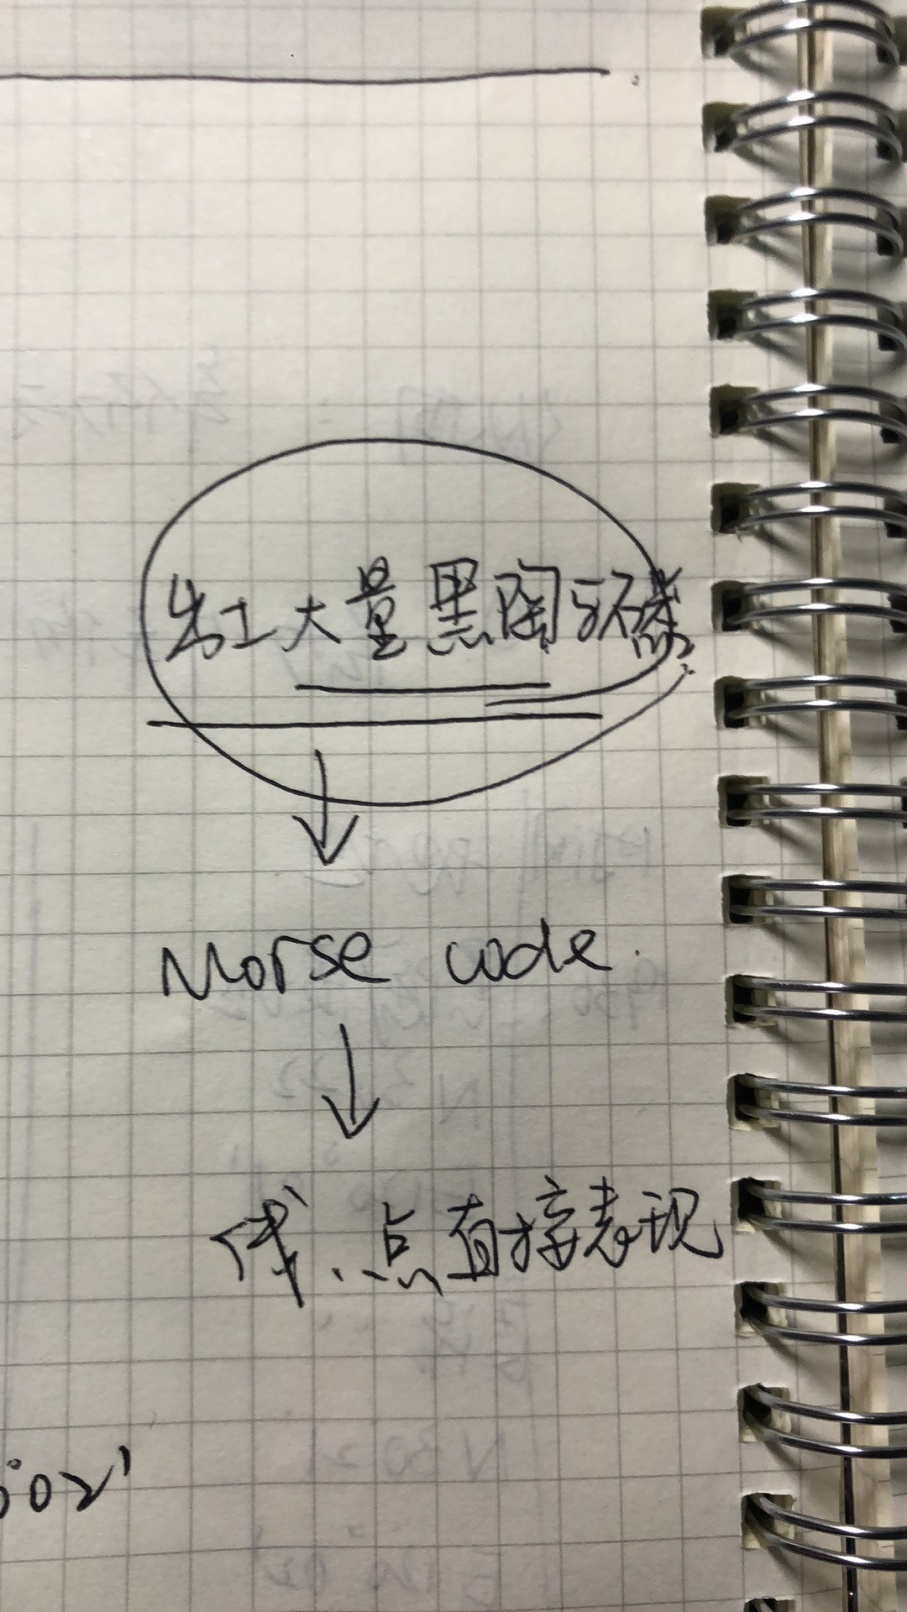 出土大量黑陶
Morse code.
线、点直接表现
02'